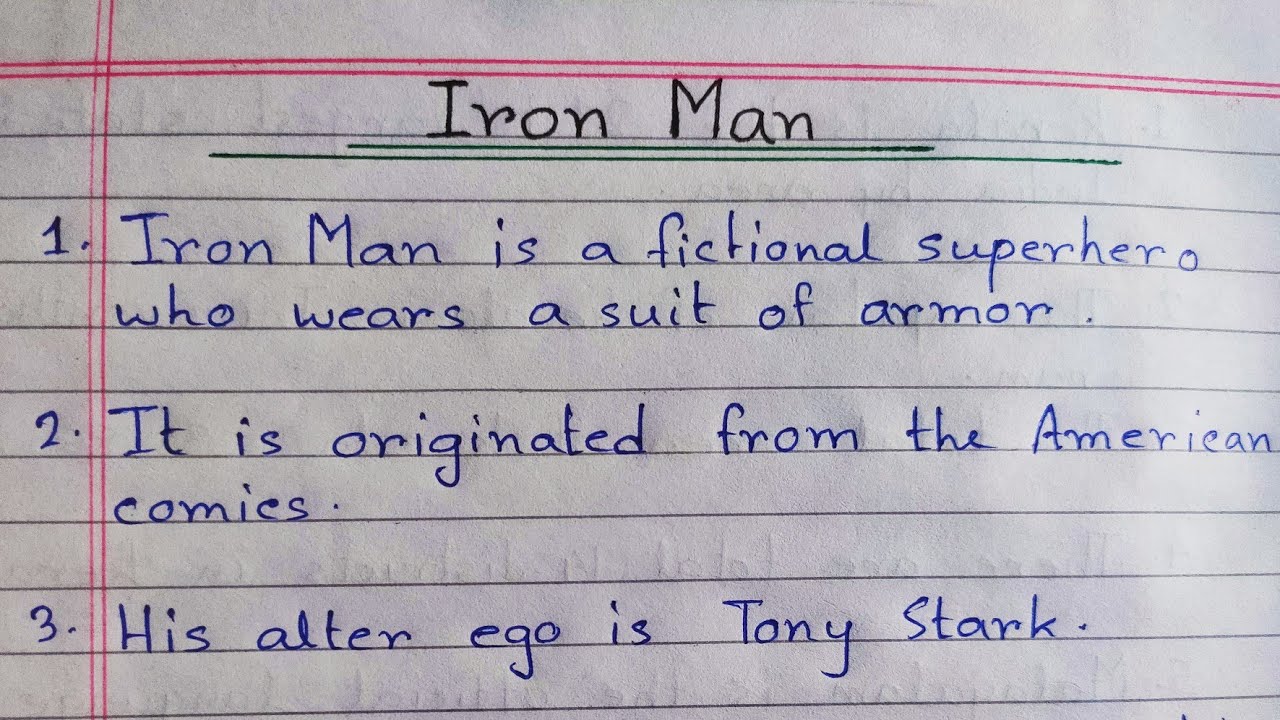 Iron Man
1. Iron Man is a fictional superhero
who wears a suit of armor.
2. It is originated from the American
comics.
3. His alter ego is Tony Stark.